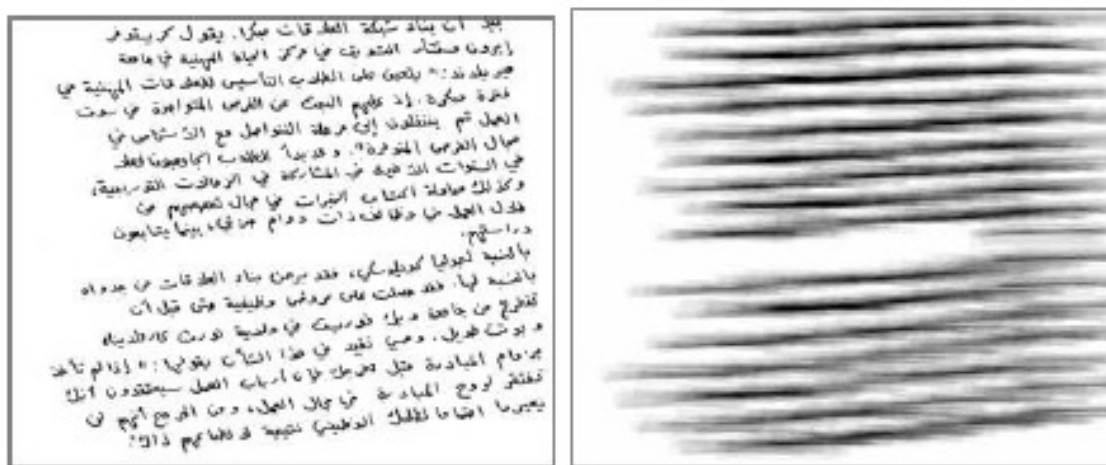 بعد أن بناء شبكة العلاقات مبكرا. يقول كريستوفر
في مركز الحياة المهنية في جامعة
على الطلاب التأسيس للعلاقات المهنية في
فترة مبكرة. إذ عليهم البحث عن الفرص المتواجدة في سوق
العمل ثم ينتقلون إلى مرحلة التواصل مع الأشخاص في
مجال الفرص المتوفرة". و قد بدأ الطلاب
في السنوات الأخيرة في المشاركة في
وكذلك محاولة اكتساب الخبرات في مجال تخصصهم من
خلال العمل في وظائف ذات دوام جزئي، بينما يتابعون
دراستهم.
بالنسبة لجوليا فقد برهن بناء العلاقات عن جدواه
بالنسبة لها. فقد حصلت على عروض وظيفية حتى قبل أن
تتخرج من جامعة في ولاية نورث كارولينا،
وهي تفيد في هذا الشأن بقولها: "إذا لم تأخذ
بزمام المبادرة قبل تخرجك فإن أرباب العمل سيعتقدون أنك
تفتقر لروح المبادرة في مجال العمل، ومن المرجح أنهم لن
يعيروا اهتماما لطلبك الوظيفي نتيجة لذلك".